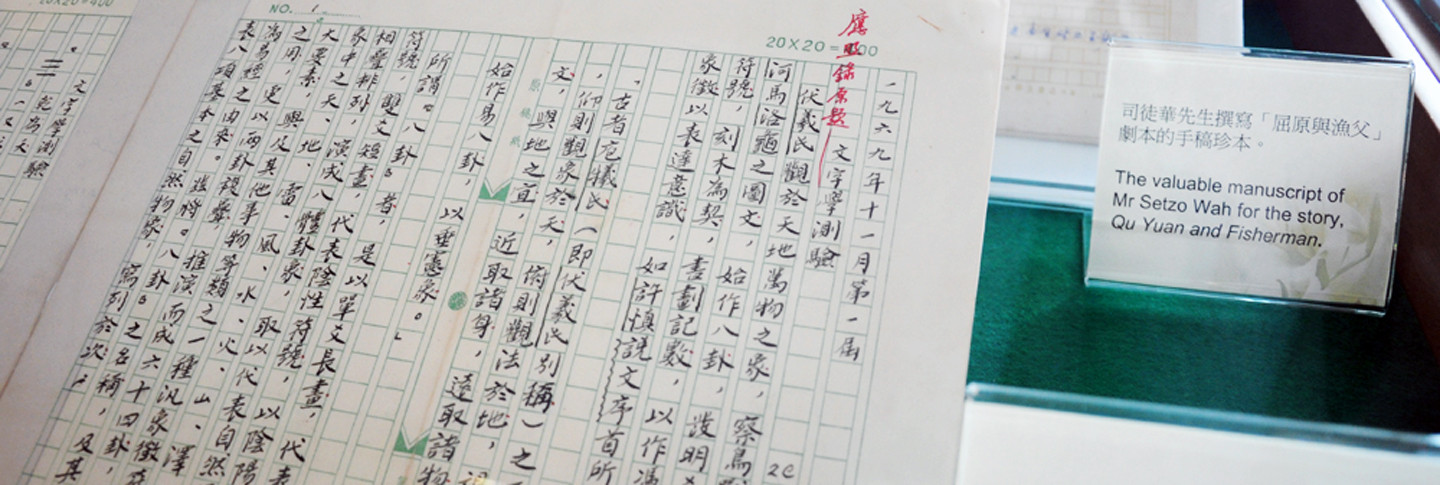 20X20=400
NO. 1
20X20=400
應照錄原題
一九六九年十一月第一屆
文字學測驗
伏羲氏觀於天地萬物之象，察鳥
河馬洛龜之圖文，始作八卦，發明
符號，刻木為契，畫劃記數，以作馮
象徵以表達意識，如許慎說文序首所
「古者庖犧氏（即伏羲氏別稱）之
，仰則觀象於天，俯則觀法於地，
文，與地之宜，近取諸身，遠取諸物
始作易八卦，以垂憲象。」
所謂“八卦”者，是以單爻長畫，代表
符號，雙爻短畫，代表陰性符號，以陰陽
相疊排列，演成八體卦象，取以代表自然
象中之天、地、雷、風、水、火、山、澤
大要素，與及其他事物等類之一種汎象徵
之用，更以兩卦複疊，推演而成六十四卦，
為易經之由來。茲將“八卦”之名稱，及其
表八項基本之自然物象，寫列於次：
文字學測驗
乾為天
司徒華先生撰寫「屈原與漁父」
劇本的手稿珍本。
The valuable manuscript of
Mr Setzo Wah for the story,
Qu Yuan and Fisherman.